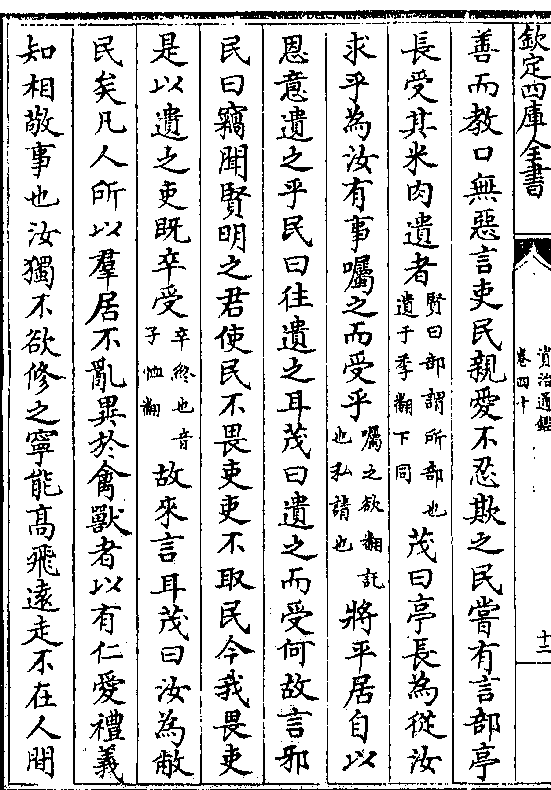 欽定四庫全書
資治通鑑
卷四十
十二
善而教口無惡言吏民親愛不忍欺之民嘗有言部亭
長受其米肉遺者賢曰部謂所部也遺于季翻下同茂曰亭長為從汝
求乎為汝有事囑之而受乎囑之欲翻託也私請也將平居自以
恩意遺之乎民曰往遺之耳茂曰遺之而受何故言邪
民曰竊聞賢明之君使民不畏吏吏不取民今我畏吏
是以遺之吏既卒受卒終也音子恤翻故來言耳茂曰汝為敝
民矣凡人所以羣居不亂異於禽獸者以有仁愛禮義
知相敬事也汝獨不欲修之寧能高飛遠走不在人間